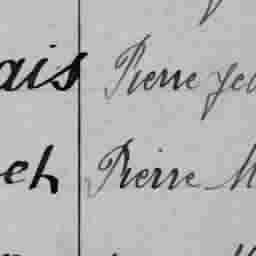 ais Pierre Jea
et Pierre M